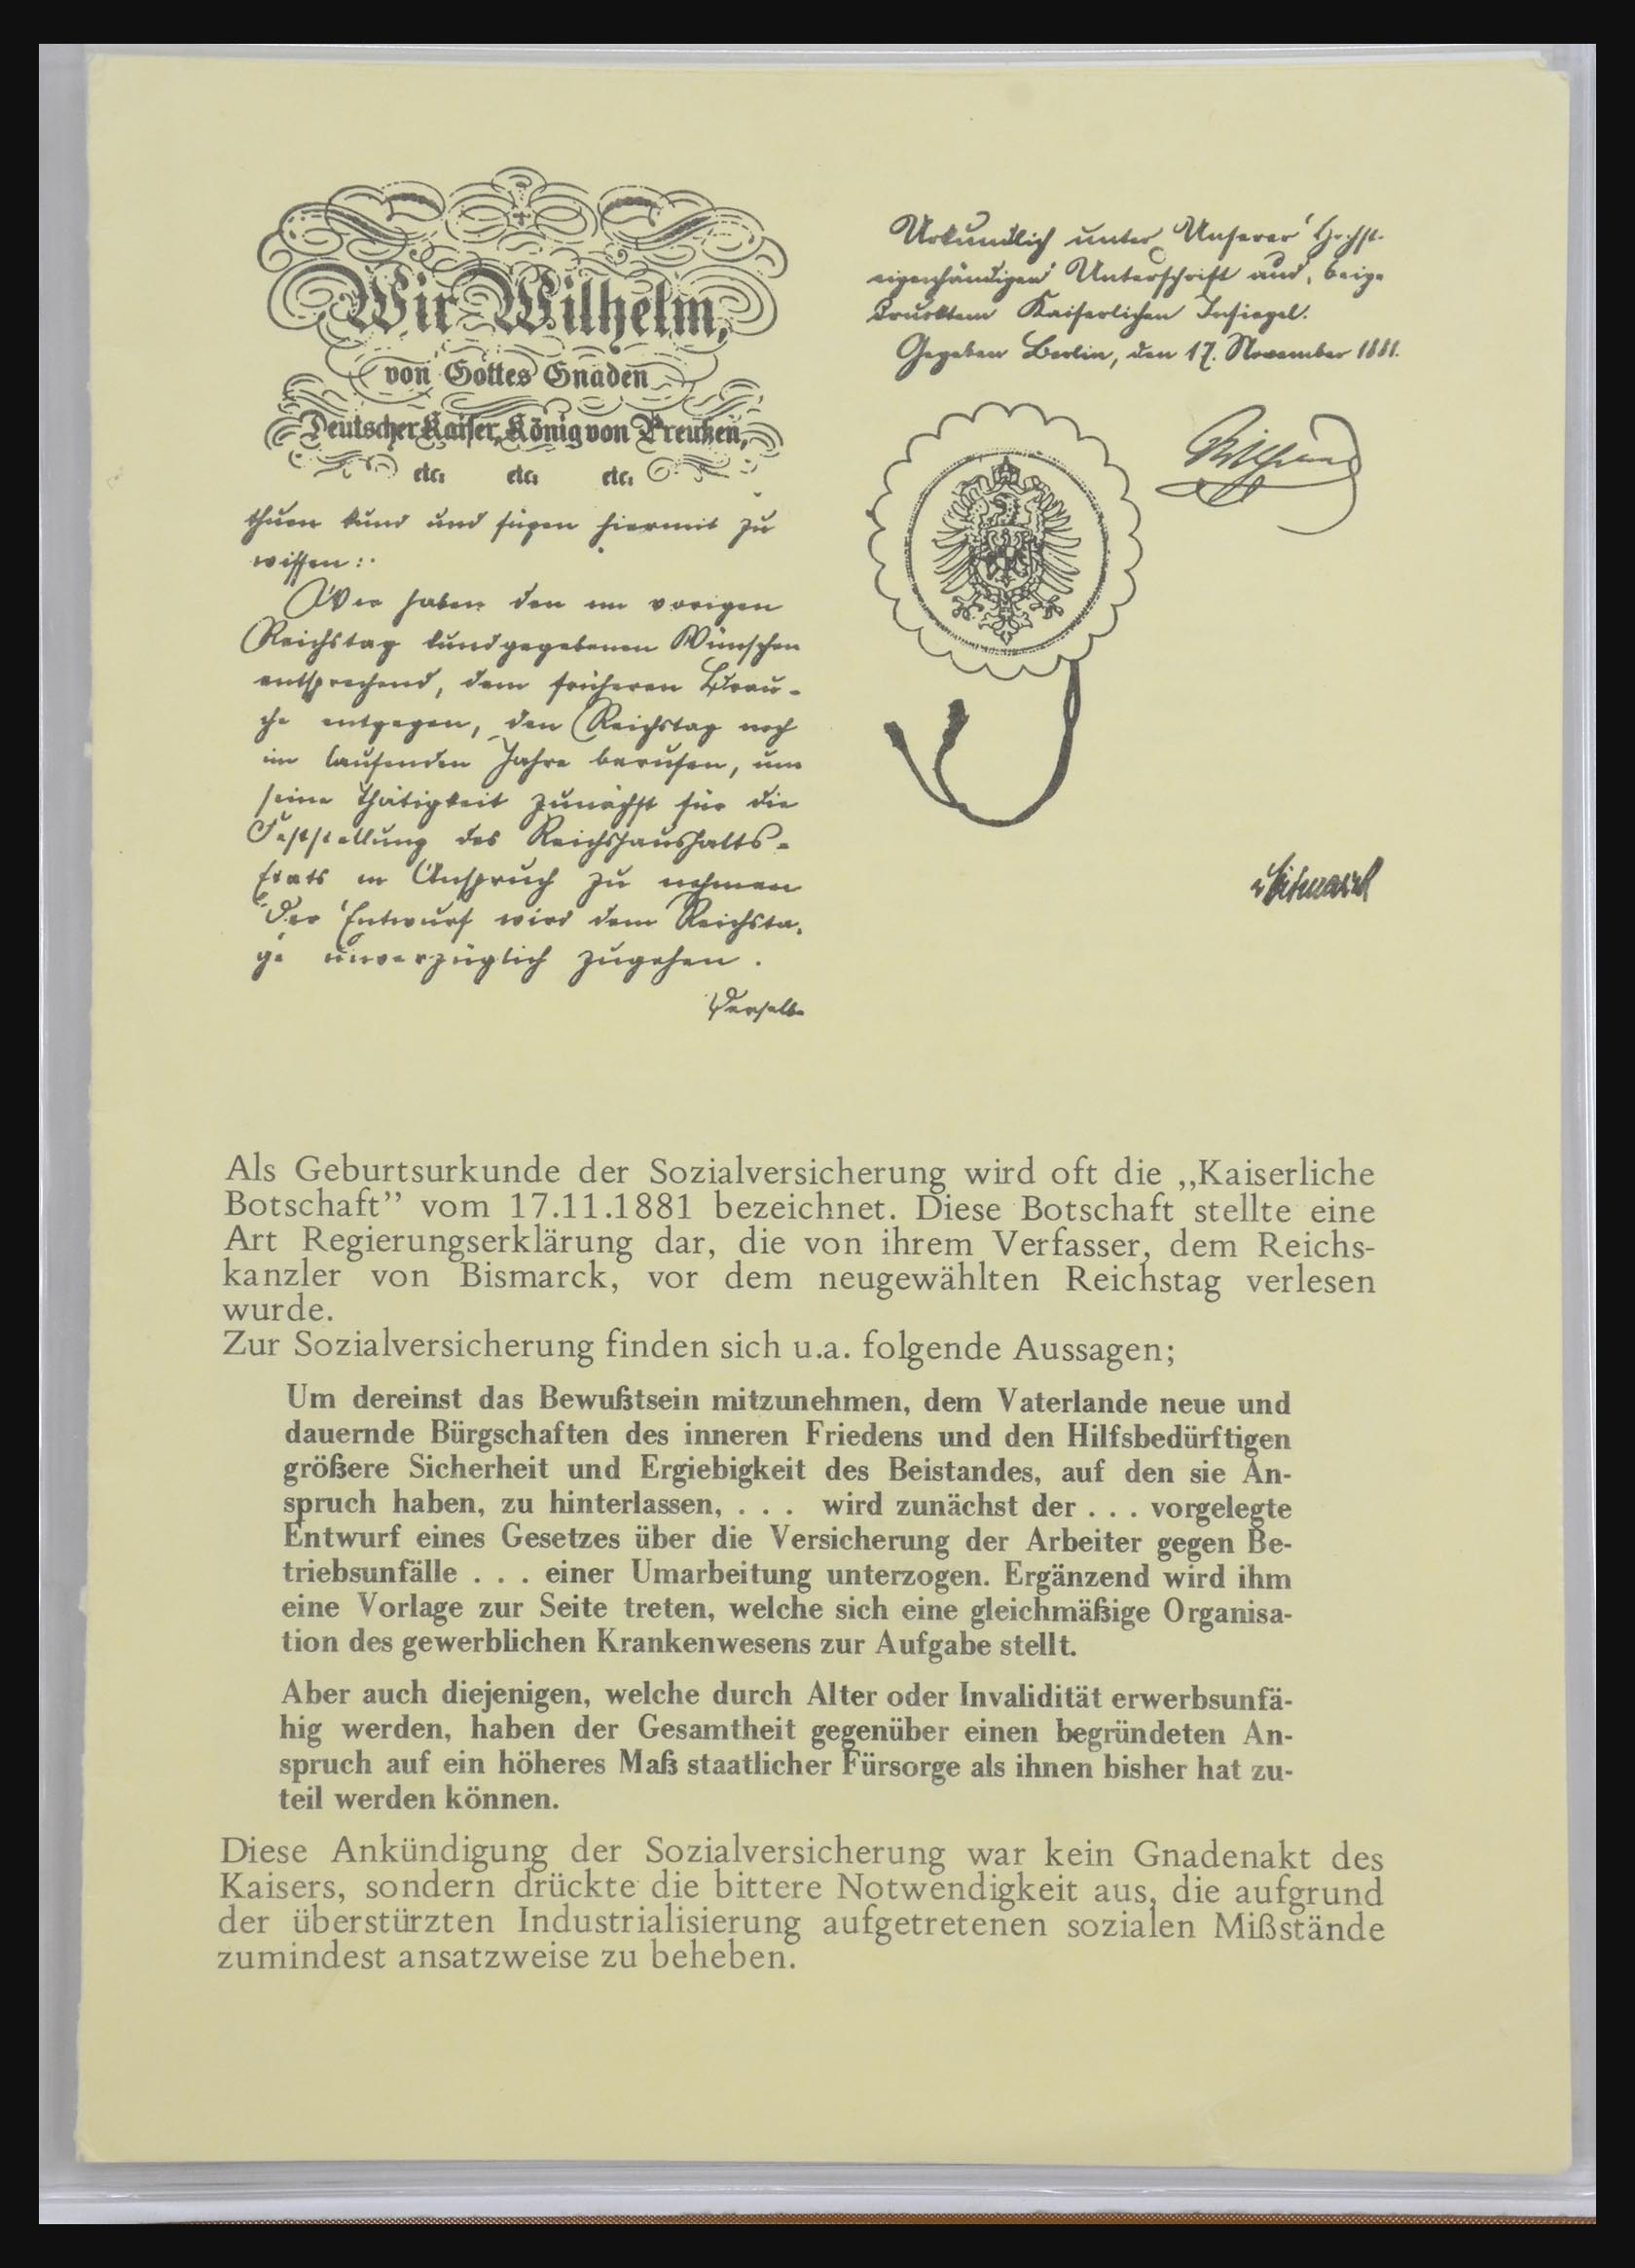 Wir Wilhelm,
von Gottes Gnaden
Deutscher Kaiser, König von Preußen,
etc. etc. etc.
thuen kund und fügen hiermit zu
wissen:
Wir haben den im vorigen
Reichstag kundgegebenen Wünschen
entsprechend, dem früheren Brau-
che entgegen, den Reichstag noch
im laufenden Jahre berufen, um
seine Thätigkeit zunächst für die
Feststellung des Reichshaushalts-
Etats in Anspruch zu nehmen
Der Entwurf wird dem Reichsta-
ge unverzüglich zugehen.
Derselbe
Urkundlich unter Unserer Höchst-
eigenhändigen Unterschrift und beige-
drucktem Kaiserlichen Insiegel.
Gegeben Berlin, den 17. November 1881.
Wilhelm
v Bismarck
Als Geburtsurkunde der Sozialversicherung wird oft die „Kaiserliche
Botschaft” vom 17.11.1881 bezeichnet. Diese Botschaft stellte eine
Art Regierungserklärung dar, die von ihrem Verfasser, dem Reichs-
kanzler von Bismarck, vor dem neugewählten Reichstag verlesen
wurde.
Zur Sozialversicherung finden sich u.a. folgende Aussagen;
Um dereinst das Bewußtsein mitzunehmen, dem Vaterlande neue und
dauernde Bürgschaften des inneren Friedens und den Hilfsbedürftigen
größere Sicherheit und Ergiebigkeit des Beistandes, auf den sie An-
spruch haben, zu hinterlassen, . . . wird zunächst der . . . vorgelegte
Entwurf eines Gesetzes über die Versicherung der Arbeiter gegen Be-
triebsunfälle . . . einer Umarbeitung unterzogen. Ergänzend wird ihm
eine Vorlage zur Seite treten, welche sich eine gleichmäßige Organisa-
tion des gewerblichen Krankenwesens zur Aufgabe stellt.
Aber auch diejenigen, welche durch Alter oder Invalidität erwerbsunfä-
hig werden, haben der Gesamtheit gegenüber einen begründeten An-
spruch auf ein höheres Maß staatlicher Fürsorge als ihnen bisher hat zu-
teil werden können.
Diese Ankündigung der Sozialversicherung war kein Gnadenakt des
Kaisers, sondern drückte die bittere Notwendigkeit aus, die aufgrund
der überstürzten Industrialisierung aufgetretenen sozialen Mißstände
zumindest ansatzweise zu beheben.